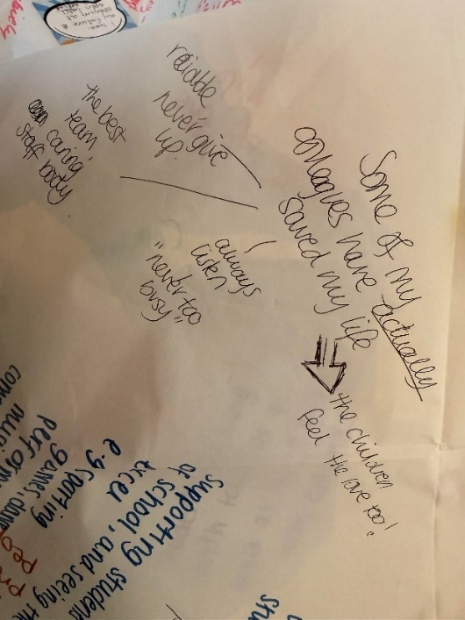 Some of my
colleagues have actually
saved my life
the children
feel the love too!
reliable
never give
up.
the best
team
caring
staff body
always
listen
"never too
busy"
Supporting students
of school, and seeing the
excel
e.g sporting
games,